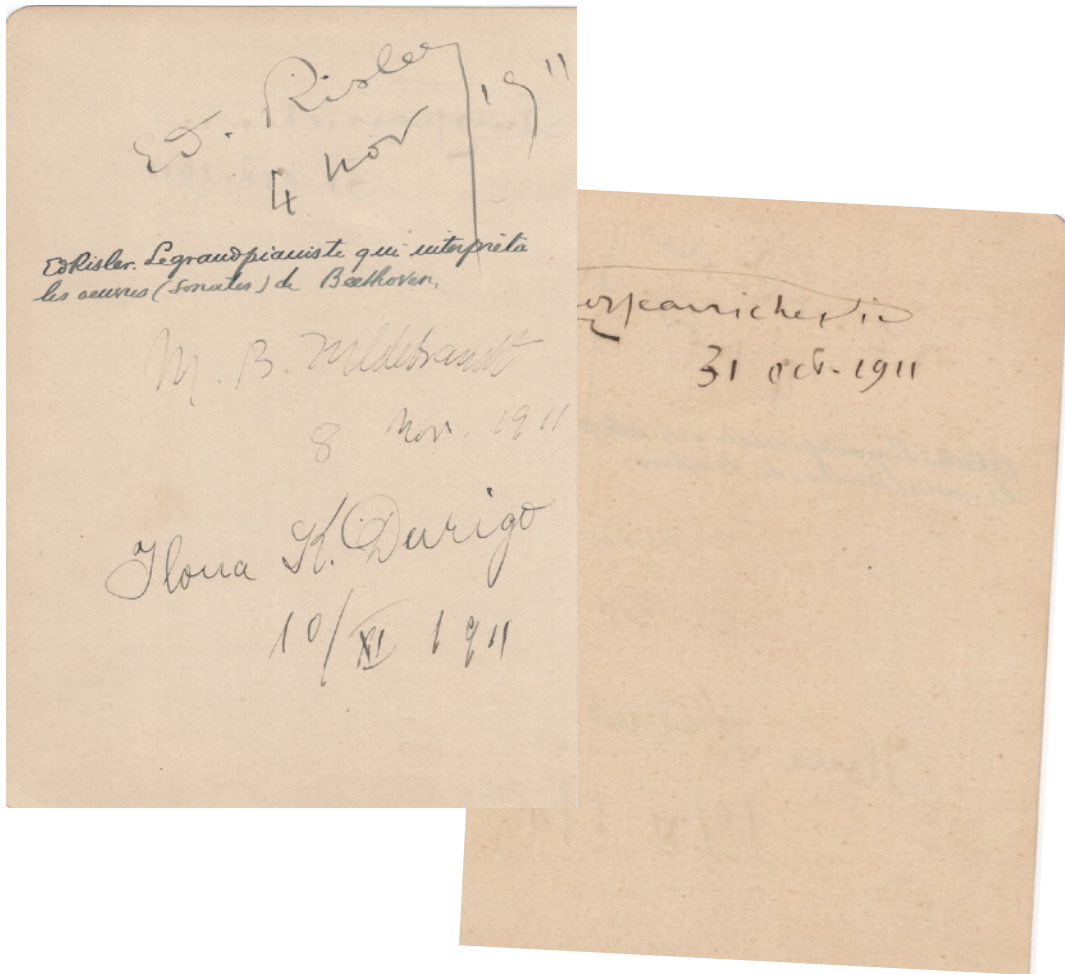 Ed. Risler
4 nov 1911
Ed Risler. Le grand pianiste qui interpréta
les oeuvres (Sonates) de Beethoven.
M. B. Hildebrandt
8 Nov. 1911
Ilona K. Durigo
10/XI 1911
jeanrichepin
31 oct. 1911